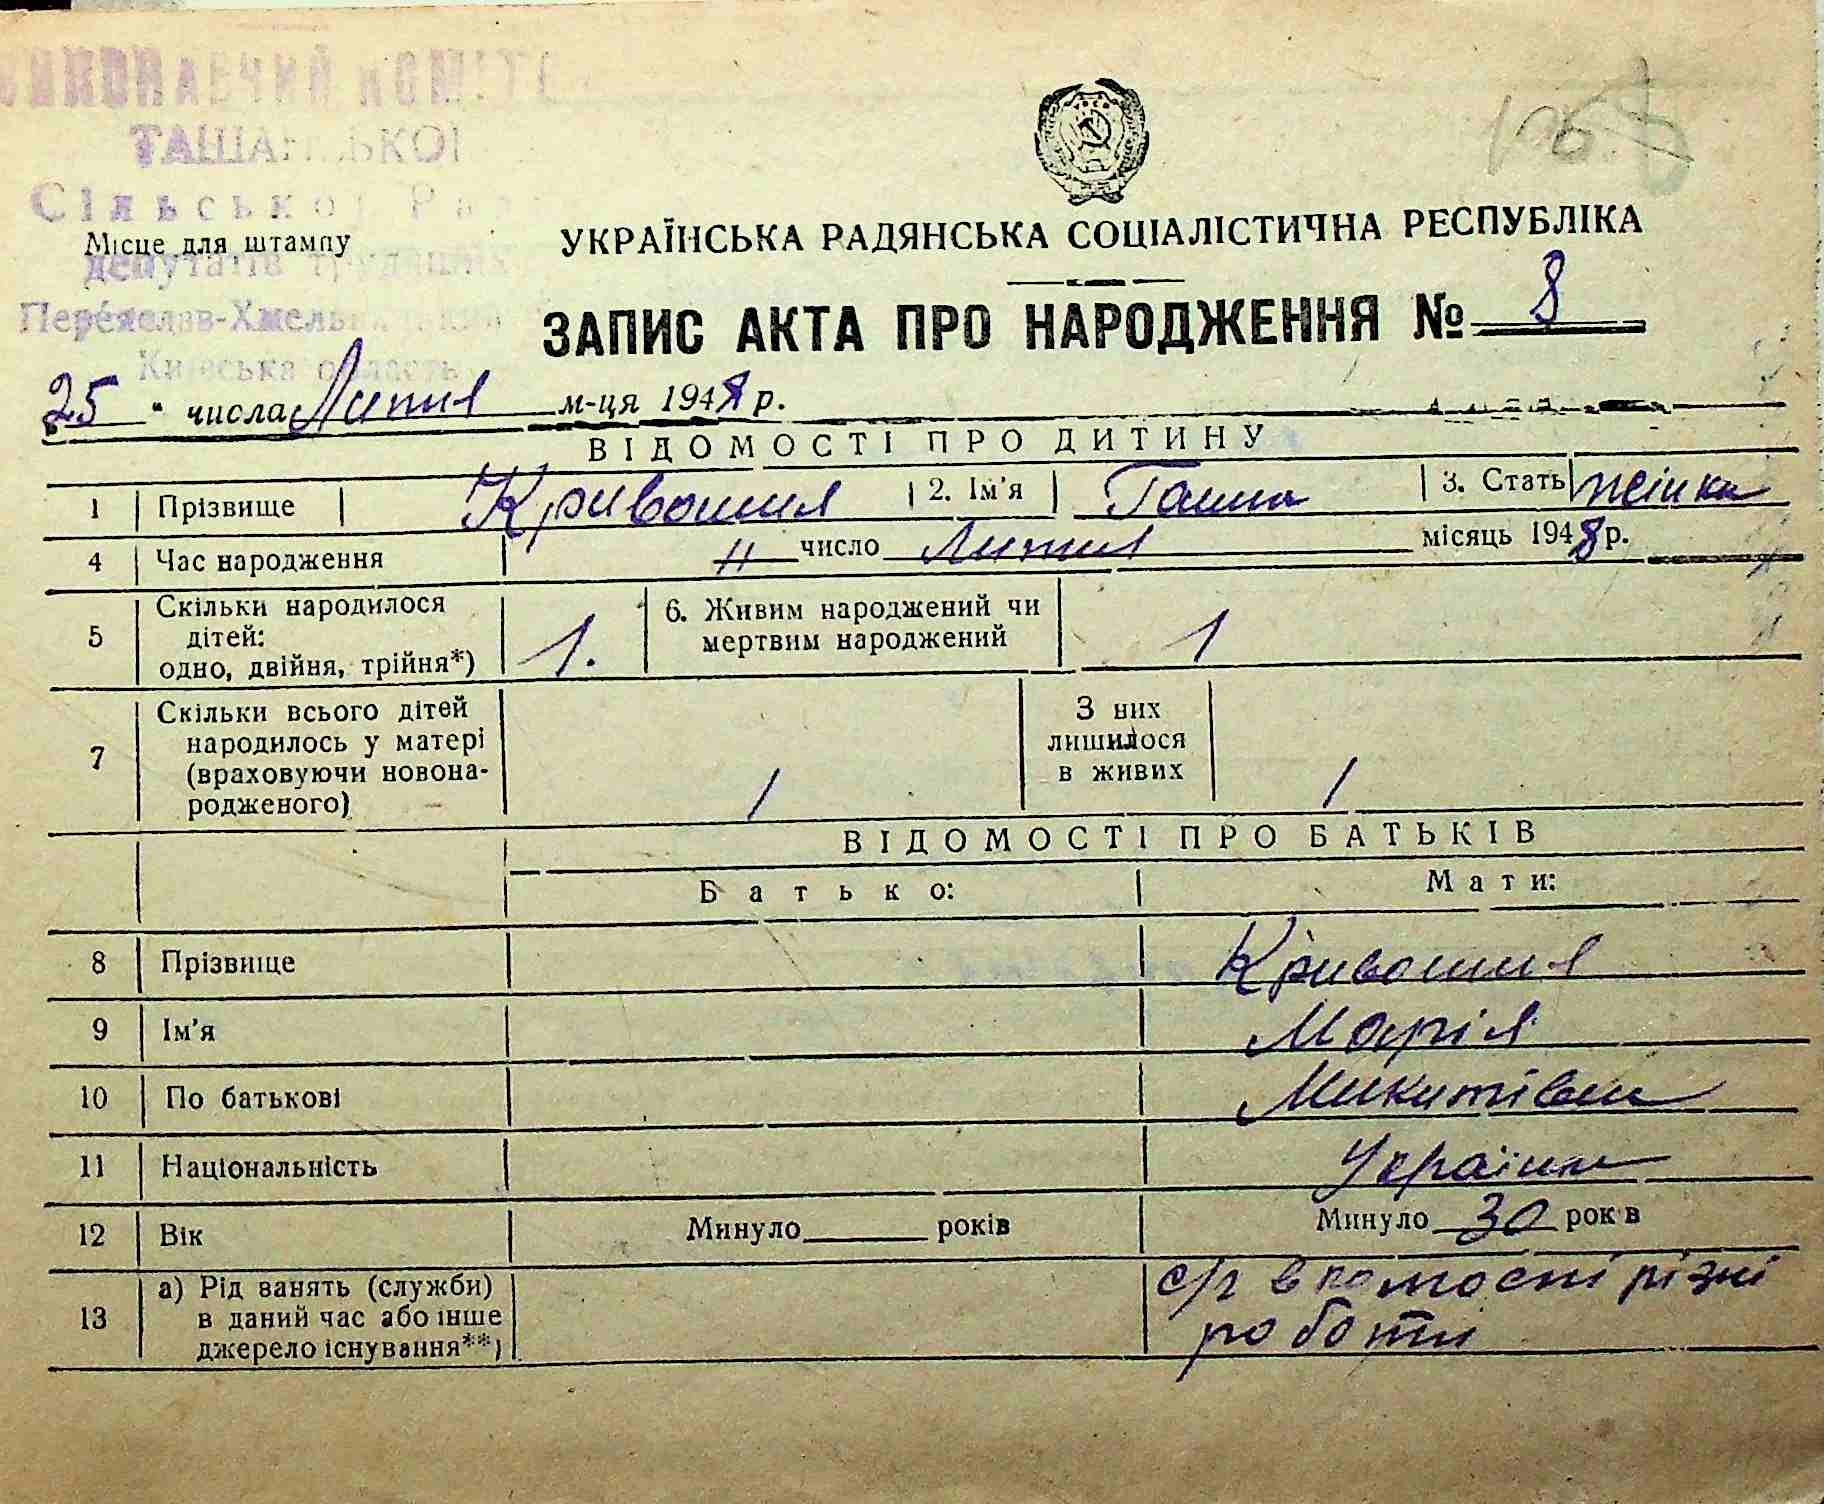 ВИКОНАВЧИЙ КОМІТЕ
ТАШАНСЬКОЇ
Сільської Рад
Місце для штампу
депутатів трудящих
Переяслав-Хмельницький
Київська область
УКРАЇНСЬКА РАДЯНСЬКА СОЦІАЛІСТИЧНА РЕСПУБЛІКА
ЗАПИС АКТА ПРО НАРОДЖЕННЯ № 8
25 " числа Липня м-ця 1948 р.
ВІДОМОСТІ ПРО ДИТИНУ
1 Прізвище Кривошия 2. Ім'я Ганна 3. Стать жінка
4 Час народження 11 число Липня місяць 1948 р.
5 Скільки народилося
дітей:
одно, двійня, трійня*) 1.
6. Живим народжений чи
мертвим народжений 1
7 Скільки всього дітей
народилось у матері
(враховуючи новона-
родженого) 1
З них
лишилося
в живих 1
ВІДОМОСТІ ПРО БАТЬКІВ
Батько: Мати:
8 Прізвище Кривошия
9 Ім'я Марія
10 По батькові Микитівна
11 Національність Українка
12 Вік Минуло років Минуло 30 рок в
13 а) Рід занять (служби)
в даний час або інше
джерело існування**)
с/г
різні
роботи